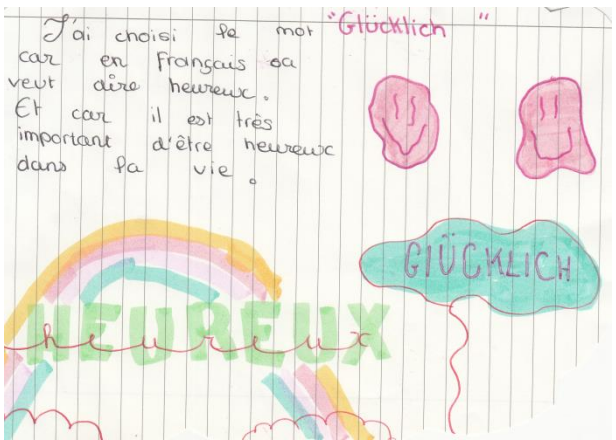 J'ai choisi le mot "Glücklich"
car en Français sa
veut dire heureux.
Et car il est très
important d'être heureux
dans la vie.
GlÜCKLICH
HEUREUX
heureux